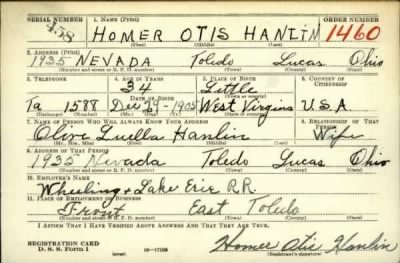 SERIAL NUMBER 1. NAME (Print) ORDER NUMBER
458 HOMER OTIS HANLIN 1460
(First) (Middle) (Last)
2. ADDRESS (Print)
1935 NEVADA Toledo Lucas Ohio
(Number and street or R. F. D. number) (Town) (County) (State)
3. TELEPHONE 4. AGE IN YEARS 5. PLACE OF BIRTH 6. COUNTRY OF CITIZENSHIP
34 Little
DATE OF BIRTH (Town or county)
Ta 1588 Dec 29-1905 West Virginia U.S.A
(Exchange) (Number) (Mo.) (Day) (Yr.) (State or country)
7. NAME OF PERSON WHO WILL ALWAYS KNOW YOUR ADDRESS 8. RELATIONSHIP OF THAT PERSON
Olive Luella Hanlin Wife
(Mr., Mrs., Miss) (First) (Middle) (Last)
9. ADDRESS OF THAT PERSON
1935 Nevada Toledo Lucas Ohio
(Number and street or R. F. D. number) (Town) (County) (State)
10. EMPLOYER'S NAME
Wheeling & Lake Erie R.R.
11. PLACE OF EMPLOYMENT OR BUSINESS
Front East Toledo
(Number and street or R. F. D. number) (Town) (County) (State)
I AFFIRM THAT I HAVE VERIFIED ABOVE ANSWERS AND THAT THEY ARE TRUE.
REGISTRATION CARD
D. S. S. Form 1 (over) 16—17105 Homer Otis Hanlin
(Registrant's signature)